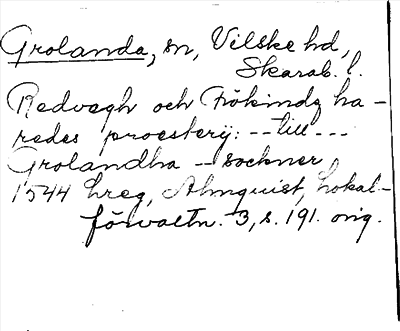 Grolanda, sn, Vilske hd,
Skarab. l.
Redvegh och Frökindz ha-
redes proesterij: -- till ---
Grolandha -- sockner,
1544 hreg, Almquist, Lokal-
förvaltn. 3, s. 191. orig.